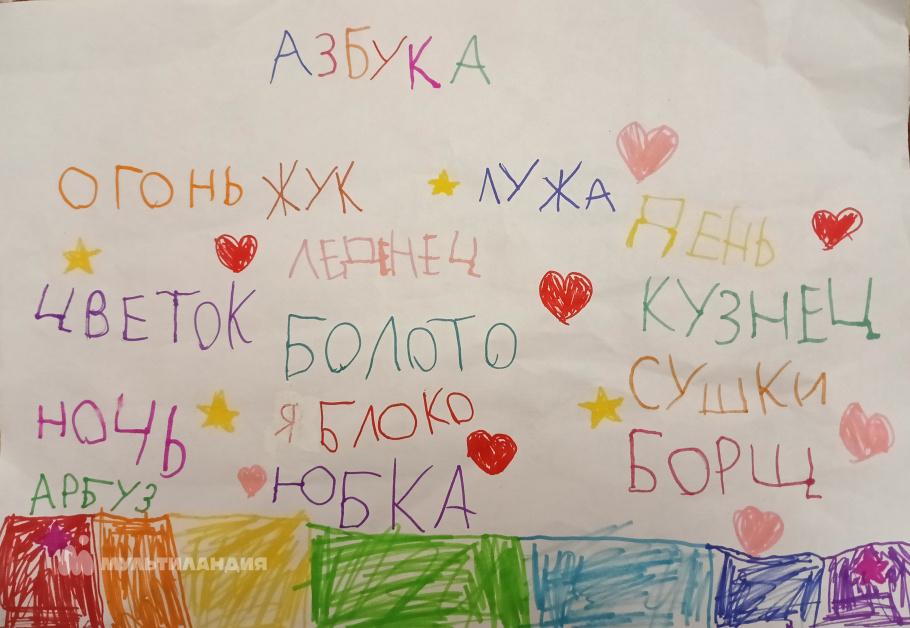 АЗБУКА
ОГОНЬ ЖУК ЛУЖА
ДЕНЬ
ЛЕДЕНЕЦ
ЦВЕТОК
КУЗНЕЦ
БОЛОТО
СУШКИ
НОЧЬ
ЯБЛОКО
БОРЩ
АРБУЗ
ЮБКА
МУЛЬТИЛАНДИЯ